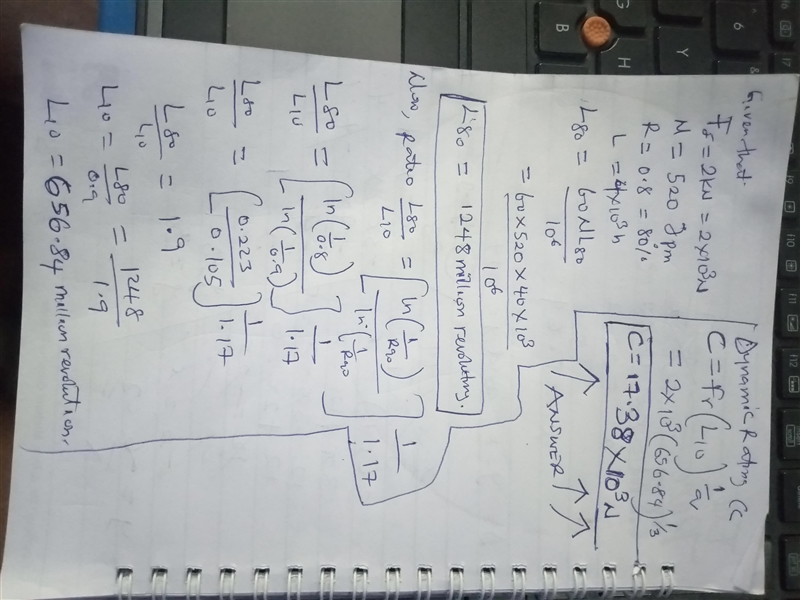 Given that:
Fr = 2KN = 2x10³N
N = 520 rpm
R = 0.8 = 80%
L = 4x10³ h
L80 = 60NL80 / 10⁶
= 60x520x40x10³ / 10⁶
L80 = 1248 million revoluting.
Also, Ratio L80/L10 = [ln(1/R90) / ln(1/R90)] 1/1.17
L80/L10 = [ln(1/0.8) / ln(1/0.9)] 1/1.17
L80/L10 = [0.223/0.105] 1/1.17
L80/L10 = 1.9
L10 = L80/0.9 = 1248/1.9
L10 = 656.84 million revolution.
Dynamic Rating CC
C = fr(L10) 1/a
= 2x10³(656.84)1/3
C = 17.38 x 10³ N
ANSWER
B
H
Y
6